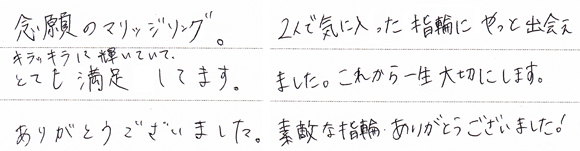 念願のマリッジリング。
キラッキラに輝いていて、
とても満足してます。
ありがとうございました。
2人で気に入った指輪にやっと出会え
ました。これから一生大切にします。
素敵な指輪、ありがとうございました!